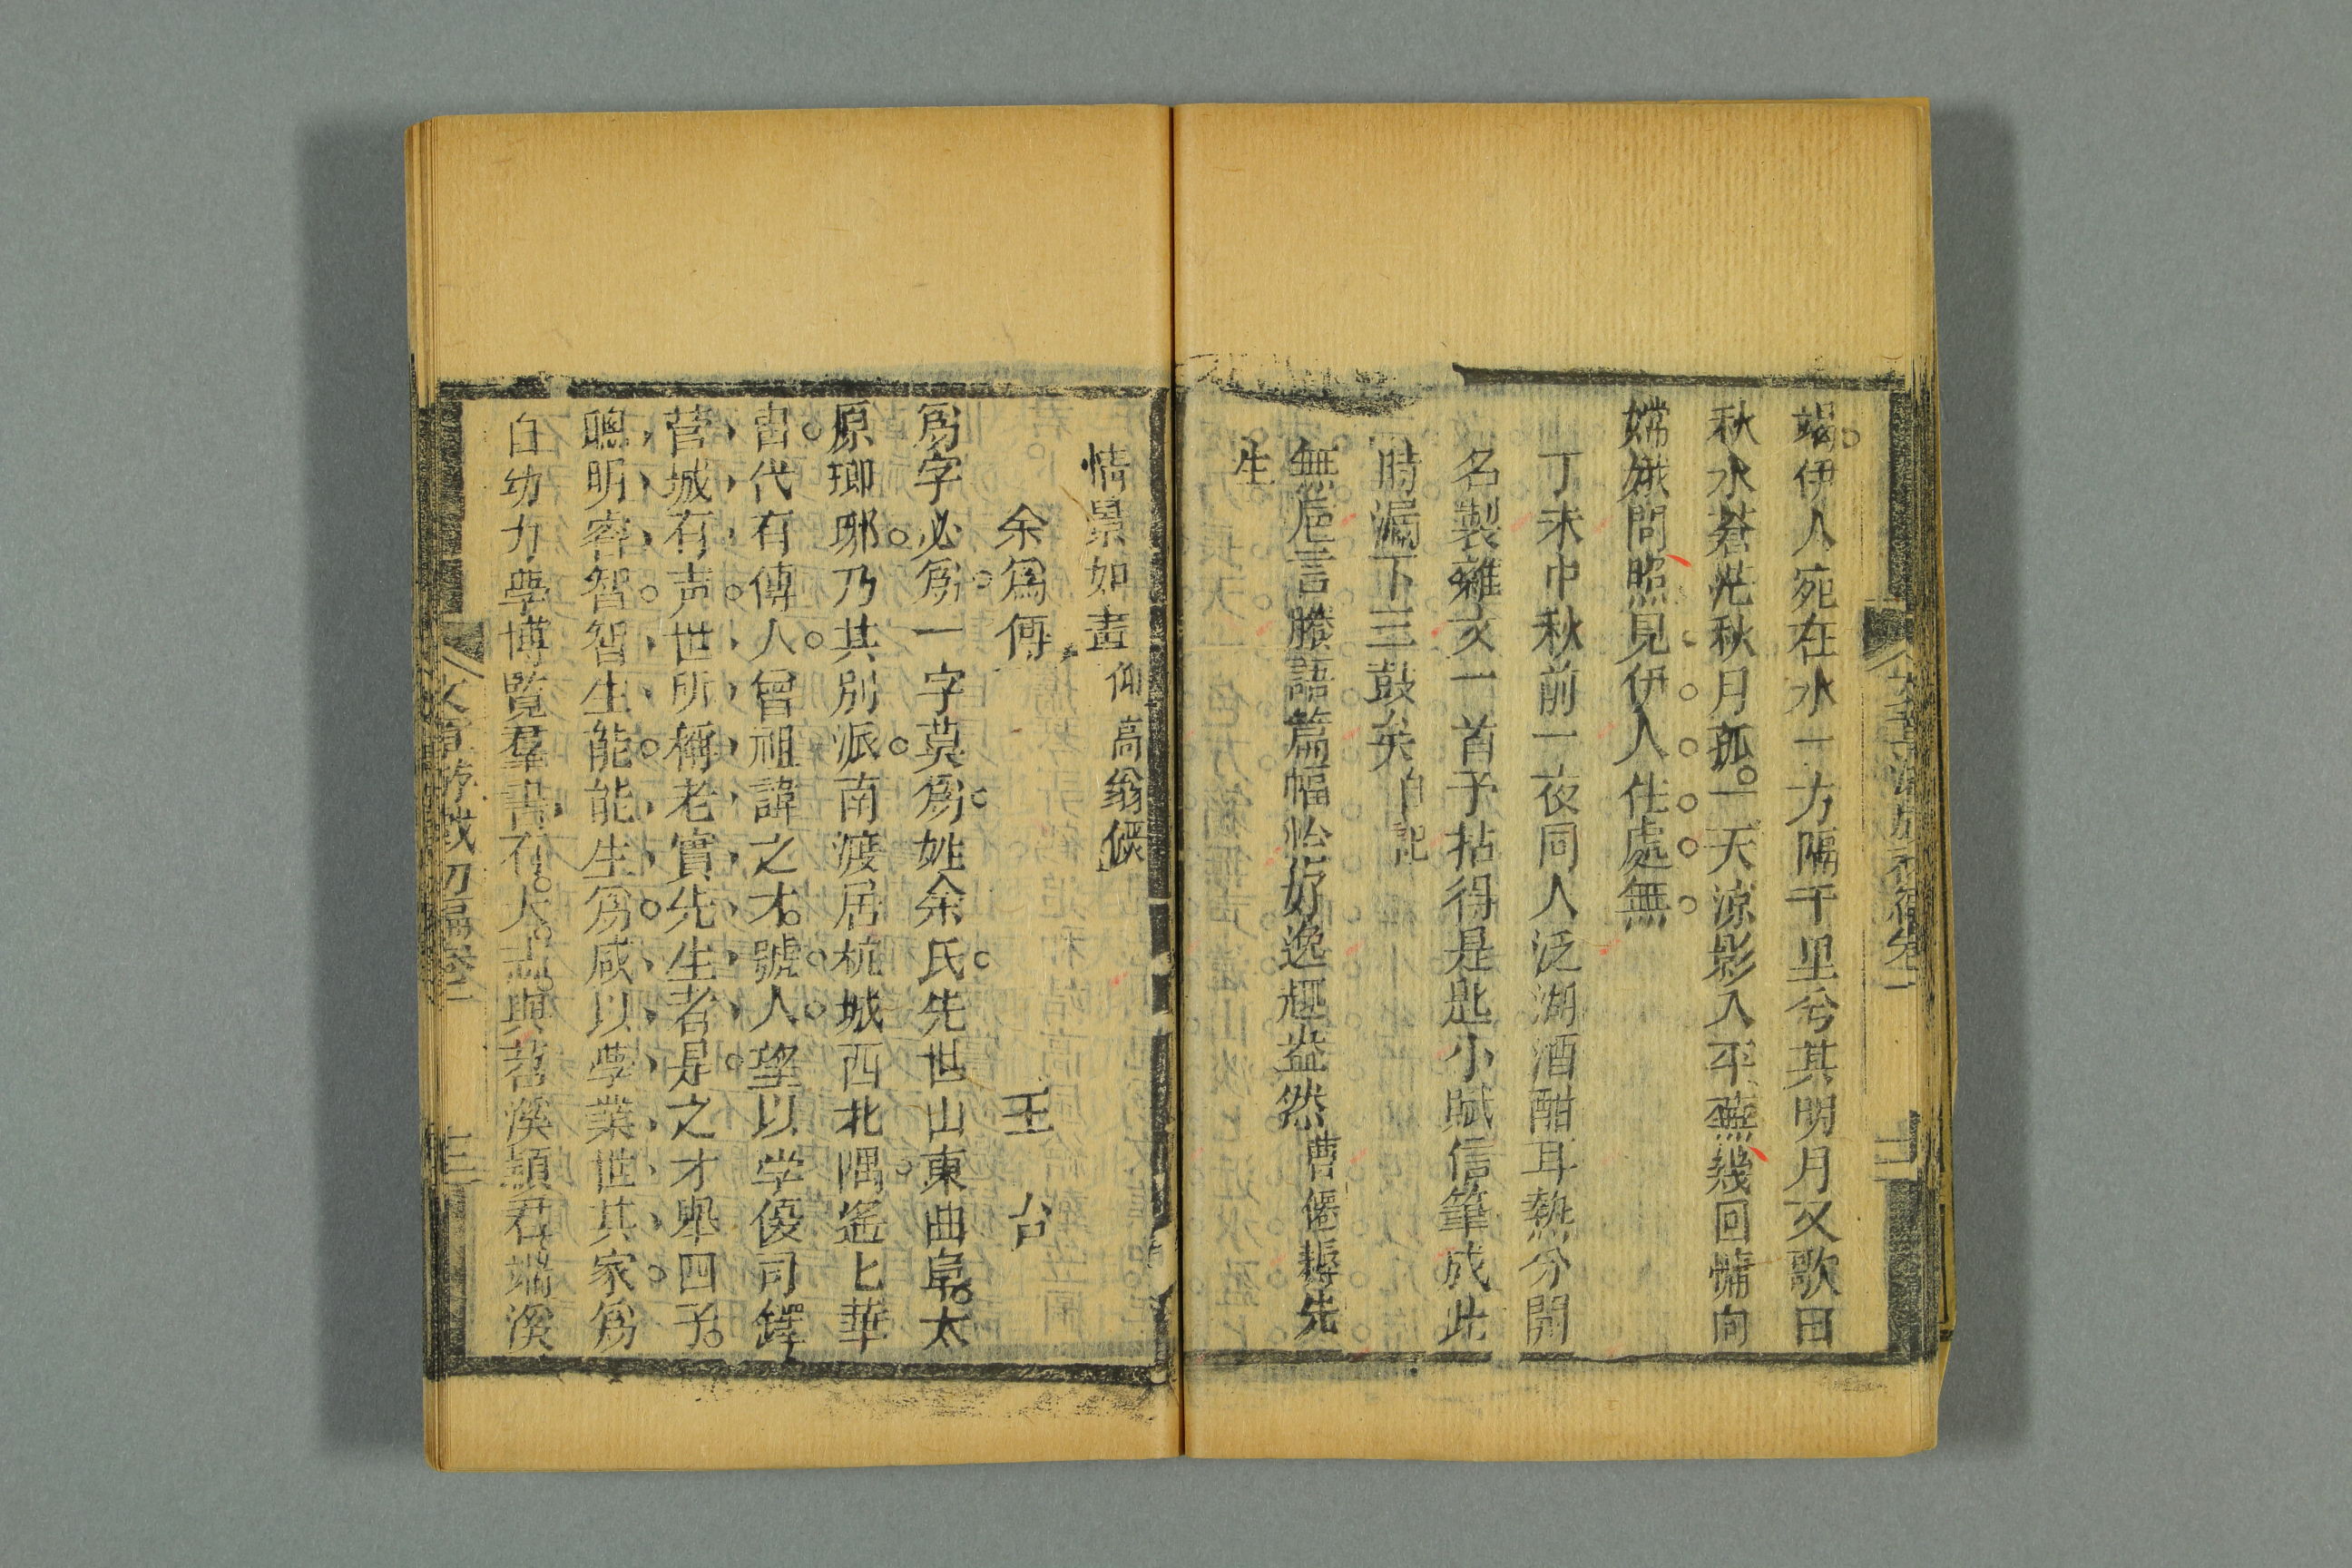 竭伊人宛在水一方隔千里兮其明月又歌曰
秋水蒼茫秋月孤一天凉影入平蕪幾回慵向
嫦娥問照見伊人住處無
丁未中秋前一夜同人泛湖酒酣耳熱分鬮
名製雜文一首予拈得是匙小賦信筆成此
時漏下三鼓矣 自記
無巵言賸語篇幅恰好逸趣盎然 曹僊耨先
生
情景如畫 仰高翁俁
余爲傳 王台
爲字必爲一字莫爲姓余氏先世山東曲阜太
原瑯琊乃其別派南渡居杭城西北隅遙上華
胄代有傳人曾祖諱之才號人望以学優司鐸
菅城有声世所稱老實先生者是之才舉四子
聰明睿智智生能能生爲咸以學業世其家爲
自幼力學博覽羣書有大志與苕溪穎君端溪
文章游戲初編卷二
三